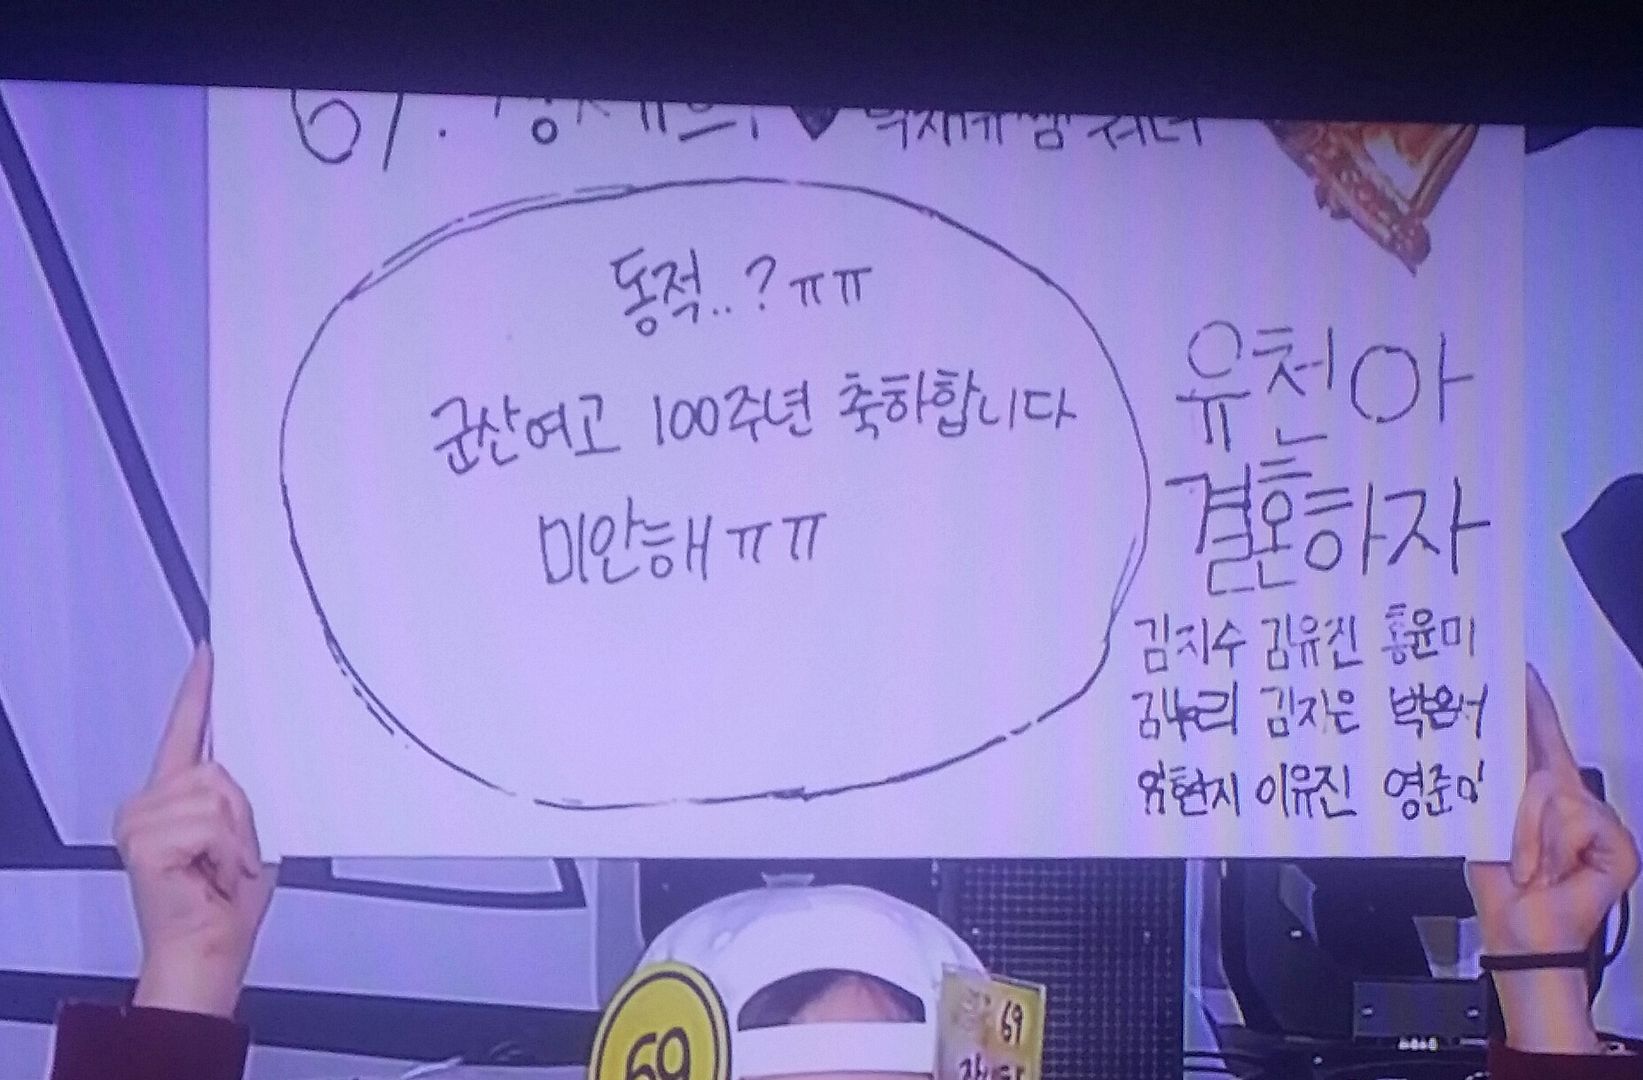 67.
동적..?ㅠㅠ
군산여고 100주년 축하합니다
미안해ㅠㅠ
유천아
결혼하자
김지수 김유진 홍윤미
김누리 김지은
이유진
69
69